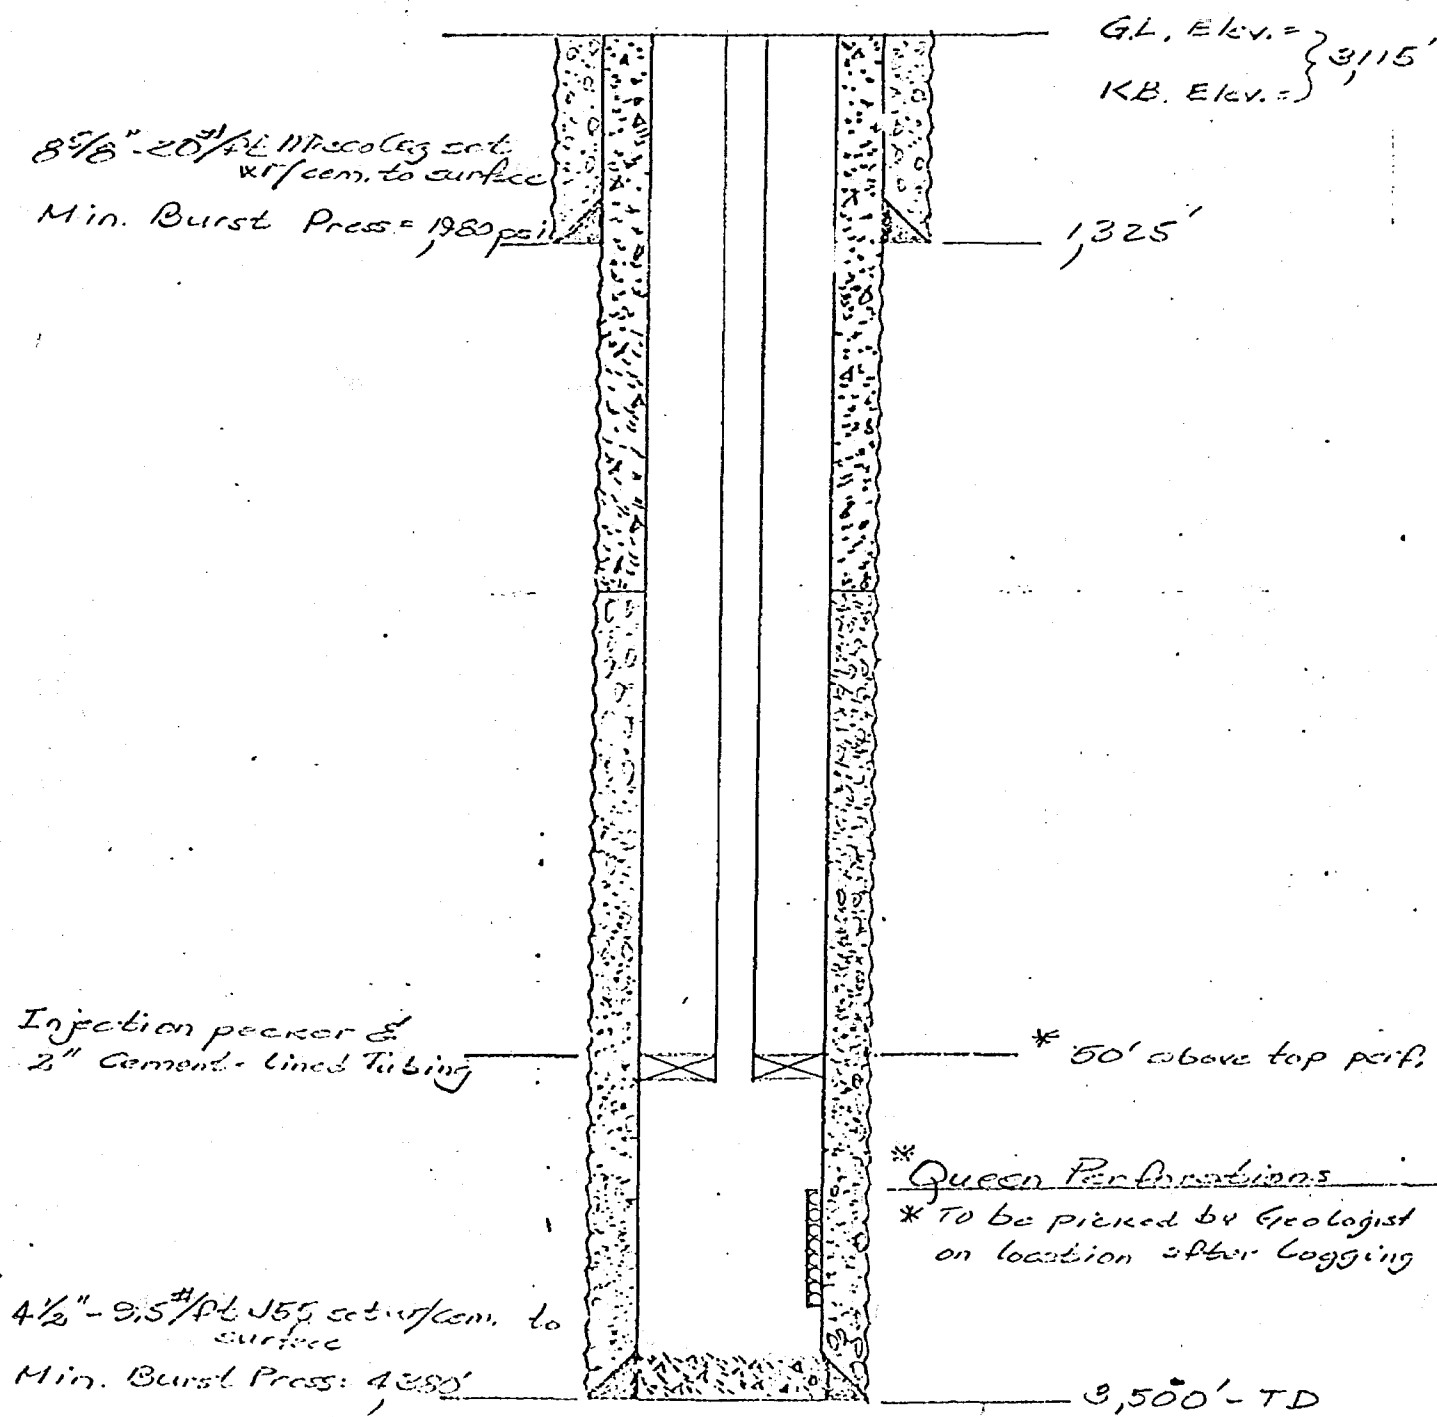 G.L. Elev. =
KB. Elev. =
3,115'
8 5/8" - 20#/ft set
w/cem. to surface
Min. Burst Press = 1,980 psi
1,325'
Injection packer &
2" Cement-lined Tubing
* 50' above top perf.
* Queen Perforations
* To be picked by Geologist
on location after Logging
4 1/2" - 9.5#/ft J55 set w/cem. to
surface
Min. Burst Press:
3,500' - TD